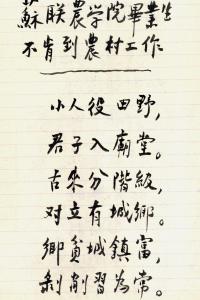 蘇联農学院畢業生
不肯到農村工作
小人役田野，
君子入廟堂。
古来分階級，
对立有城鄉。
鄉貧城鎮富，
剥削習為常。